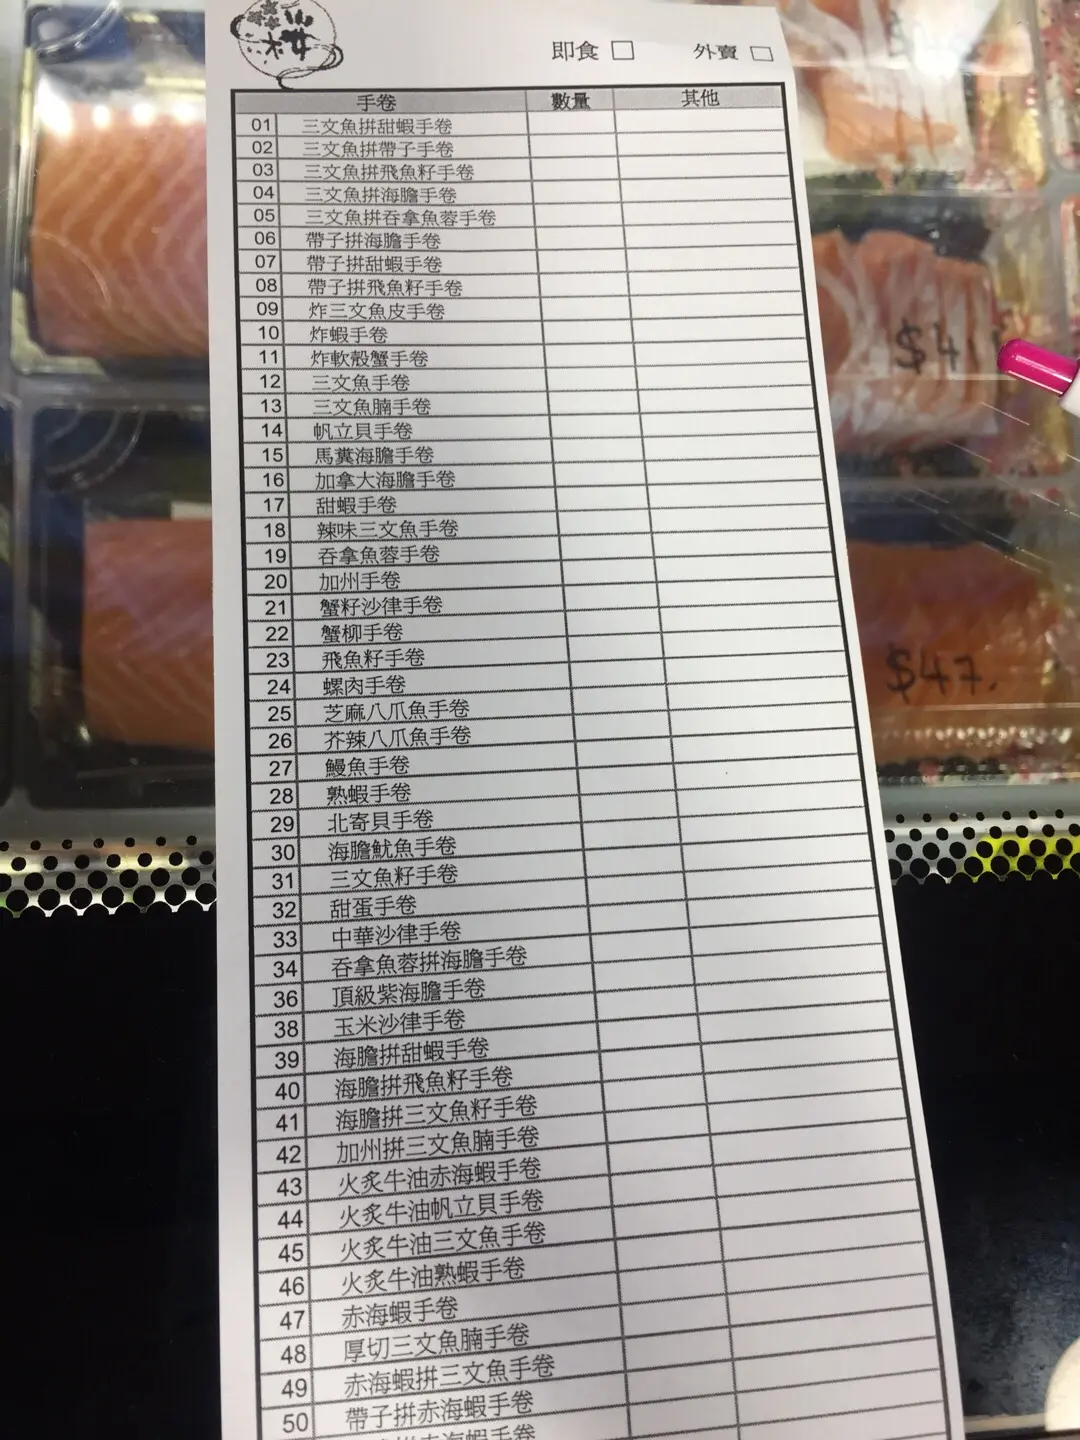 即食 □ 外賣 □
手卷 數量 其他
01 三文魚拼甜蝦手卷
02 三文魚拼帶子手卷
03 三文魚拼飛魚籽手卷
04 三文魚拼海膽手卷
05 三文魚拼吞拿魚蓉手卷
06 帶子拼海膽手卷
07 帶子拼甜蝦手卷
08 帶子拼飛魚籽手卷
09 炸三文魚皮手卷
10 炸蝦手卷
11 炸軟殼蟹手卷
12 三文魚手卷
13 三文魚腩手卷
14 帆立貝手卷
15 馬糞海膽手卷
16 加拿大海膽手卷
17 甜蝦手卷
18 辣味三文魚手卷
19 吞拿魚蓉手卷
20 加州手卷
21 蟹籽沙律手卷
22 蟹柳手卷
23 飛魚籽手卷
24 螺肉手卷
25 芝麻八爪魚手卷
26 芥辣八爪魚手卷
27 鰻魚手卷
28 熟蝦手卷
29 北寄貝手卷
30 海膽魷魚手卷
31 三文魚籽手卷
32 甜蛋手卷
33 中華沙律手卷
34 吞拿魚蓉拼海膽手卷
36 頂級紫海膽手卷
38 玉米沙律手卷
39 海膽拼甜蝦手卷
40 海膽拼飛魚籽手卷
41 海膽拼三文魚籽手卷
42 加州拼三文魚腩手卷
43 火炙牛油赤海蝦手卷
44 火炙牛油帆立貝手卷
45 火炙牛油三文魚手卷
46 火炙牛油熟蝦手卷
47 赤海蝦手卷
48 厚切三文魚腩手卷
49 赤海蝦拼三文魚手卷
50 帶子拼赤海蝦手卷
$47.